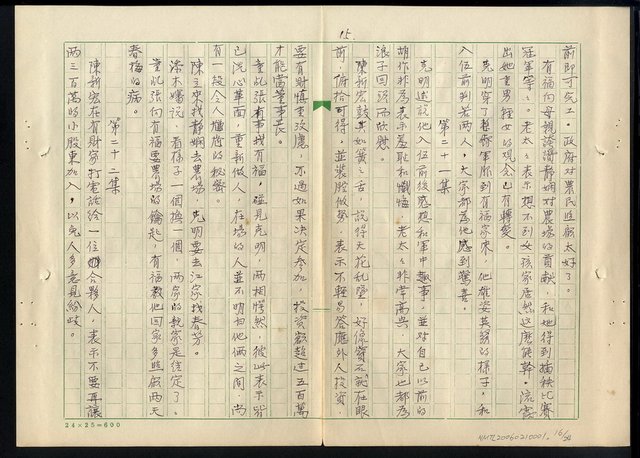 15.
前即可完工。政府對農民照顧太好了。
有福向母親誇讚靜嫻對農場的貢獻,和她得到插秧比賽
冠軍等々。老太々表示想不到女孩家居然這麼能幹。流露
出她重男輕女的觀念已有轉變。
第二十一集
克明穿了 軍服到有福家來,他雄姿英發的樣子,和
入伍前判若兩人,大家都為他感到驚喜。
克明述說他入伍前後感想和軍中趣事。並對自己以前的
胡作非為表示羞恥和懺悔。老太々非常高興,大家也都為
浪子回頭而欣慰。
陳新宏鼓其如簧之舌,說得天花亂墜,好像寶石就在眼
前,俯拾可得。並裝腔做勢,表示不輕易答應外人投資,
要有財慎重考慮,不過如果決定參加,投資額超過五百萬
才能當董事長。
童比張有事找有福,碰見克明,兩相愕然,彼此表示皆
已洗心革面,重新做人,在場的人並不明白他倆之間,尚
有一段令人尷尬的秘密。
陳主來找靜嫻去農場,克明要去江家找春芳。
添木嬸說,看樣子一個換一個,兩家的親家是結定了。
童比張向有福要農場的鑰匙,有福教他回家多照顧兩天
春梅的病。
第二十二集
陳新宏在有財家打電話給一位 合夥人,表示不要再讓
兩三百萬的小股東加入,以免人多意見紛歧。
24×25=600
NMTL20060210001, 16/24